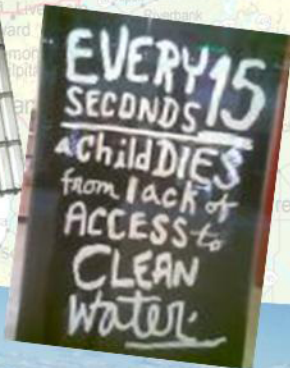 Riverbank
EVERY 15
SECONDS
a child DIES
from lack of
ACCESS to
CLEAN
water.